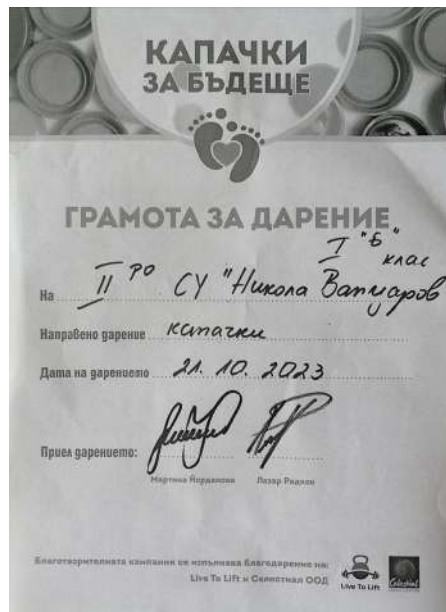 КАПАЧКИ
ЗА БЪДЕЩЕ
ГРАМОТА ЗА ДАРЕНИЕ
I "Б"
клас
На II РО СУ "Никола Вапцаров
Направено дарение капачки
Дата на дарението 21. 10. 2023
Приел дарението:
Мартина Йорданова Лазар Радков
Благотворителната кампания се изпълнява благодарение на:
Live To Lift и Селестиал ООД
Live To Lift
Celestial